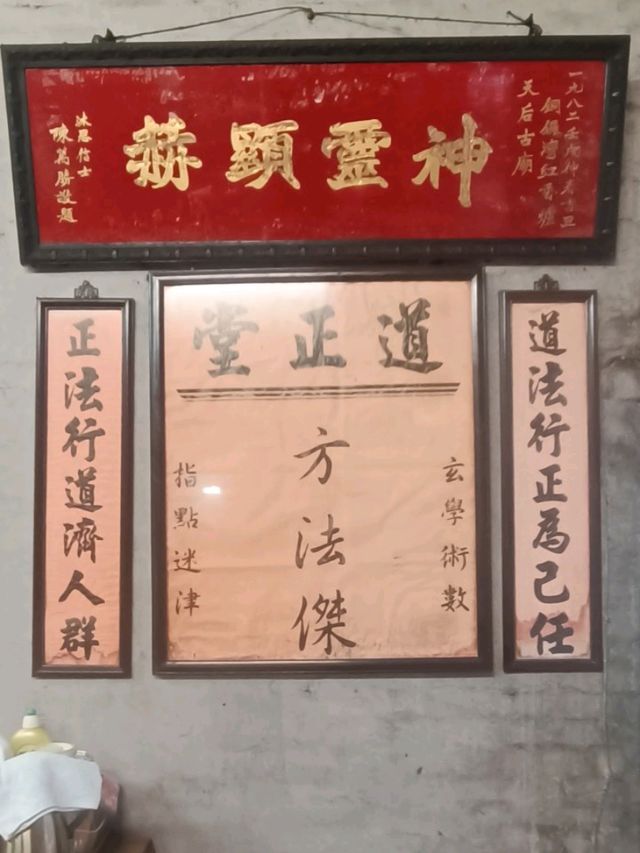 一九八二壬戌仲春吉旦
銅鑼灣紅香爐
天后古廟
神靈顯赫
沐恩信士
陳萬勝敬題
道正堂
玄學術數
方法傑
指點迷津
道法行正為己任
正法行道濟人群